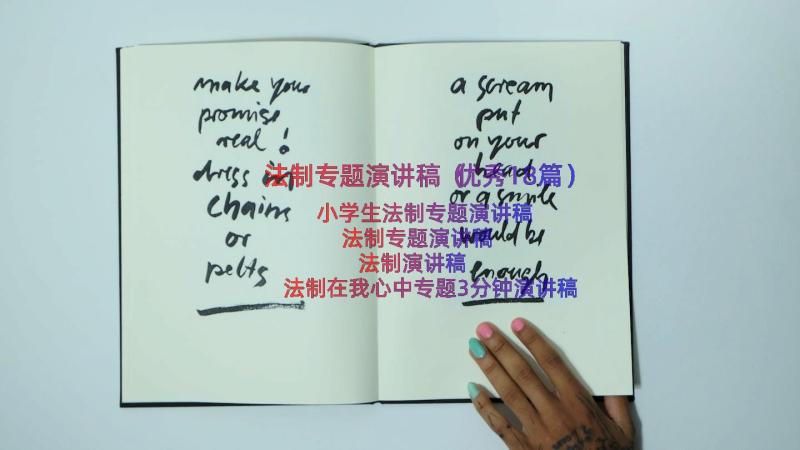 make your
promise
real!
dress in
chains
or
pelts
a scream
put
on your
head
or a smile
would be
enough
法制专题演讲稿（优秀18篇）
小学生法制专题演讲稿
法制专题演讲稿
法制演讲稿
法制在我心中专题3分钟演讲稿